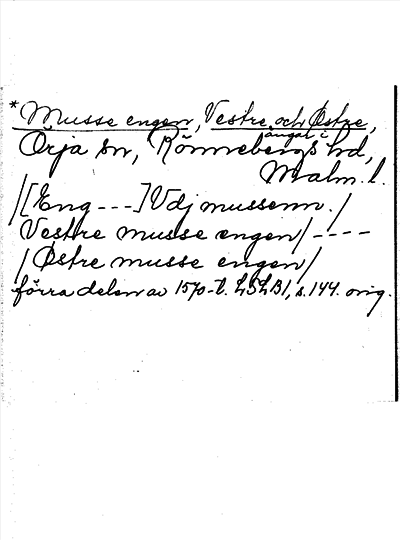 *Musse engen, Vestre och Østre,
ängar i
Örja sn, Rönnebergs hd,
Malm. l.
/[Eng ---] Vdj mussenn./
Vestre musse engen/----
/Østre musse engen/
förra delen av 1570-t. LSLB1, s. 144. orig.